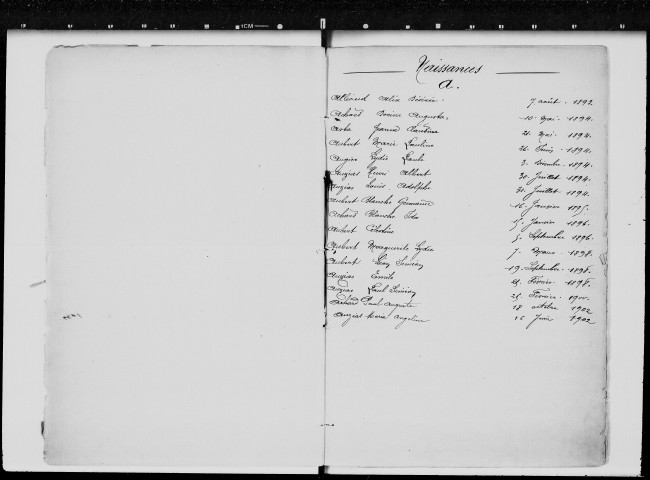 1CM
Naissances
A.
Allemand Alix Désirée. 7 août. 1892.
Achard Augusta. 10. Mai. 1894.
Jeanne Claudine 21. Mai. 1894.
Aubert Marie Pauline 26. Juin. 1894.
Augier Lydie Paule 3. 1894.
Auzias Henri Albert 30. Juillet. 1894.
Auzias Louis Adolphe 30. Juillet. 1894.
Aubert Blanche Germaine 16. Janvier 1895.
Achard Blanche Ida 15. Janvier 1896.
Aubert 5. Septembre 1896.
Aubert Marguerite Lydie 7. Mars. 1898.
Aubert 19. Septembre. 1898.
Auzias Emile 21. Février. 1898.
Auzias Paul 25. Février.
Paul Auguste 18 octobre 1902
Auzias Marie Angeline 16 Juin 1902